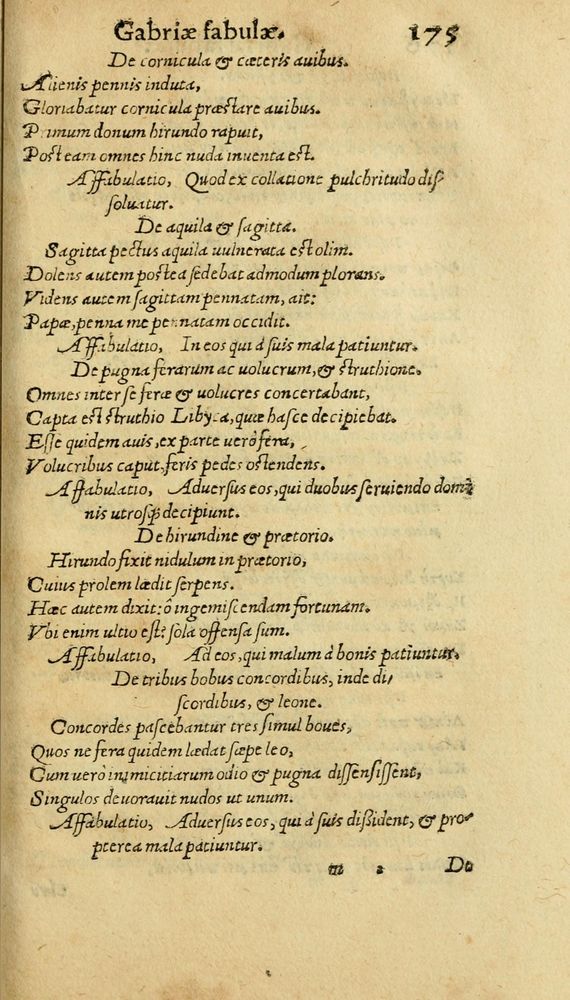 Gabriæ fabulæ. 175
De cornicula & cæteris auibus.
Alienis pennis induta,
Gloriabatur cornicula præstare auibus.
Primum donum hirundo rapuit,
Posteam omnes hinc nuda inuenta est.
Affabulatio, Quod ex collatione pulchritudo dis
soluatur.
De aquila & sagitta.
Sagitta pectus aquila uulnerata est olim.
Dolens autem postea sedebat admodum plorans.
Videns autem sagittam pennatam, ait:
Papæ, penna me pennatam occidit.
Affabulatio, In eos qui à suis mala patiuntur.
De pugna ferarum ac uolucrum, & struthione.
Omnes inter se feræ & uolucres concertabant,
Capta est struthio Libyca, quæ hasce decipiebat.
Esse quidem auis, ex parte uerò fera,
Volucribus caput, feris pedes ostendens.
Affabulatio, Aduersus eos, qui duobus seruiendo domi
nis utrosq; decipiunt.
De hirundine & prætorio.
Hirundo fixit nidulum in prætorio,
Cuius prolem lædit serpens.
Hæc autem dixit: ô ingemiscendam fortunam.
Vbi enim ultio est? sola offensa sum.
Affabulatio, Ad eos, qui malum à bonis patiuntur.
De tribus bobus concordibus, inde di/
scordibus, & leone.
Concordes pascebantur tres simul boues,
Quos ne fera quidem lædat sæpe leo,
Cum uerò inimicitiarum odio & pugna dissensissent,
Singulos deuorauit nudos ut unum.
Affabulatio, Aduersus eos, qui à suis dißident, & pro/
pterea mala patiuntur.
m 2 De